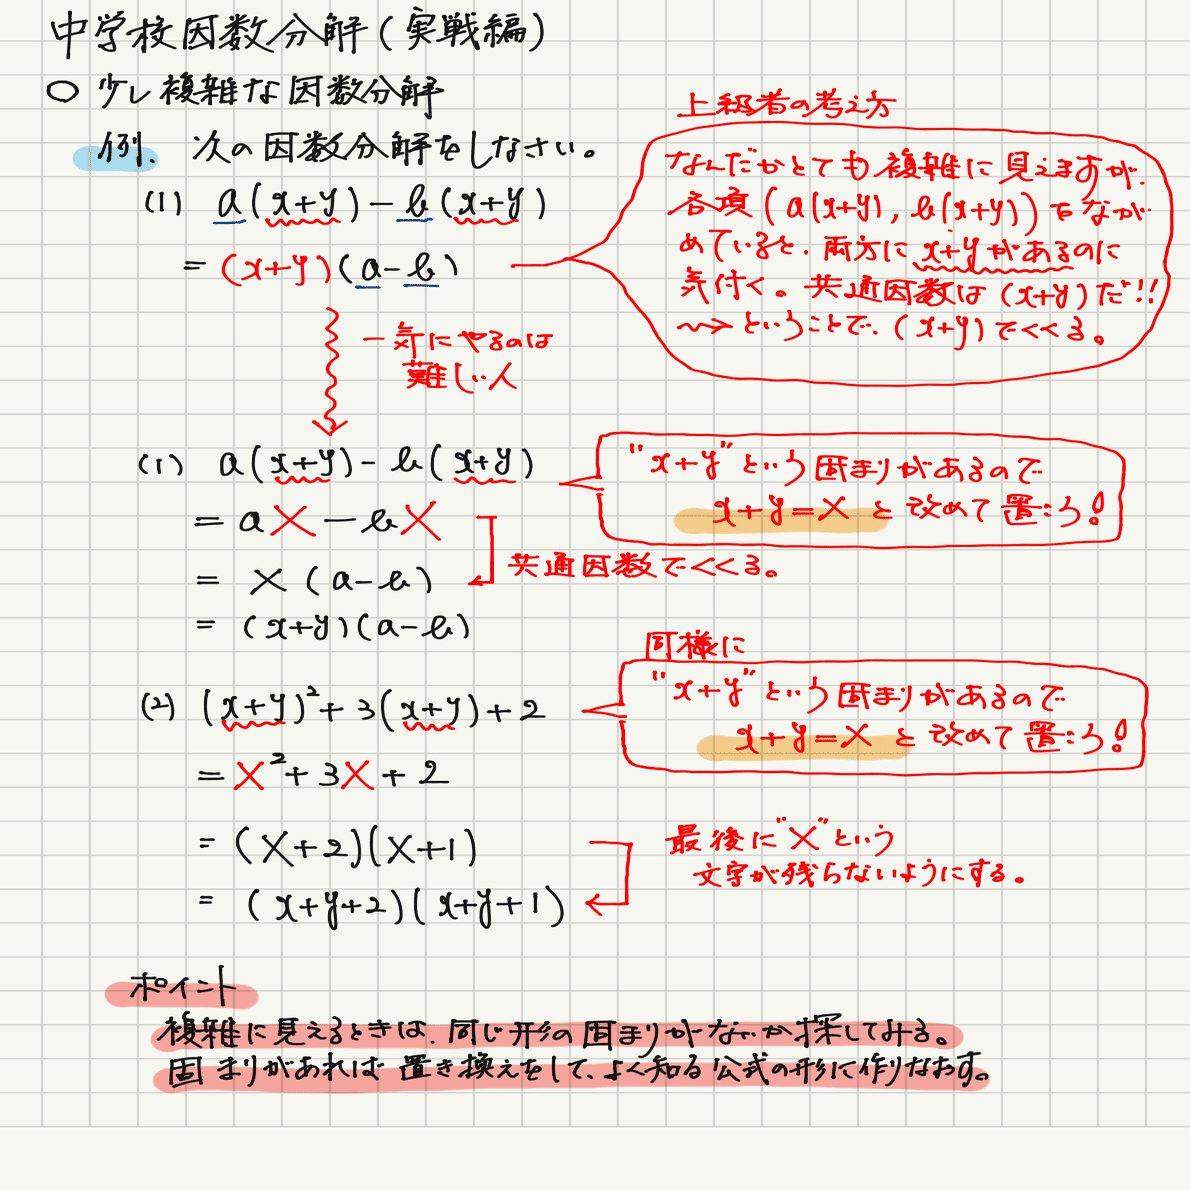 中学校因数分解(実戦編)
○ 少し複雑な因数分解
例. 次の因数分解をしなさい。
(1) a(x+y)-b(x+y)
=(x+y)(a-b)
上級者の考え方
なんだかとても複雑に見えますが、
各項(a(x+y), b(x+y))をなが
めていると、両方にx+yがあるのに
気付く。共通因数は(x+y)だ!!
⇝ということで、(x+y)でくくる。
一気にやるのは
難しい人
(1) a(x+y)-b(x+y)
=aX-bX
=X(a-b)
=(x+y)(a-b)
"x+y"という固まりがあるので
x+y=Xと改めて置こう!
共通因数でくくる。
同様に
(2) (x+y)²+3(x+y)+2
=X²+3X+2
=(X+2)(X+1)
=(x+y+2)(x+y+1)
"x+y"という固まりがあるので
x+y=Xと改めて置こう!
最後に"X"という
文字が残らないようにする。
ポイント
複雑に見えるときは、同じ形の固まりがないか探してみる。
固まりがあれば置き換えをして、よく知る公式の形に作りなおす。